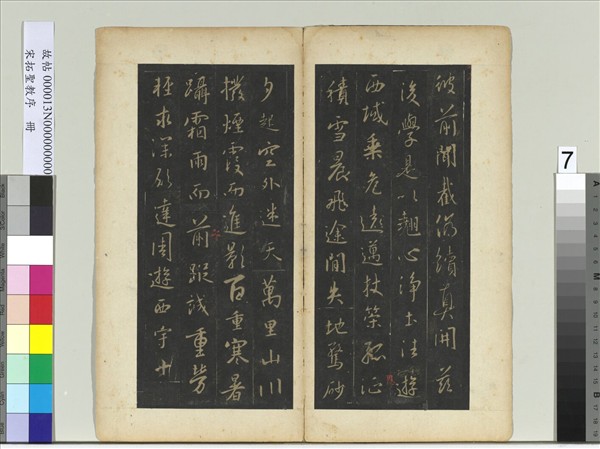 彼前聞截偽續真開茲
後學是以翹心淨土法遊
西域乘危遠邁杖策孤征
積雪晨飛途間失地驚砂
夕起空外迷天萬里山川
撥煙霞而進影百重寒暑
躡霜雨而前蹤誠重勞
輕求深願達周遊西宇十
故帖 000013N000000000
宋拓聖教序 冊
7